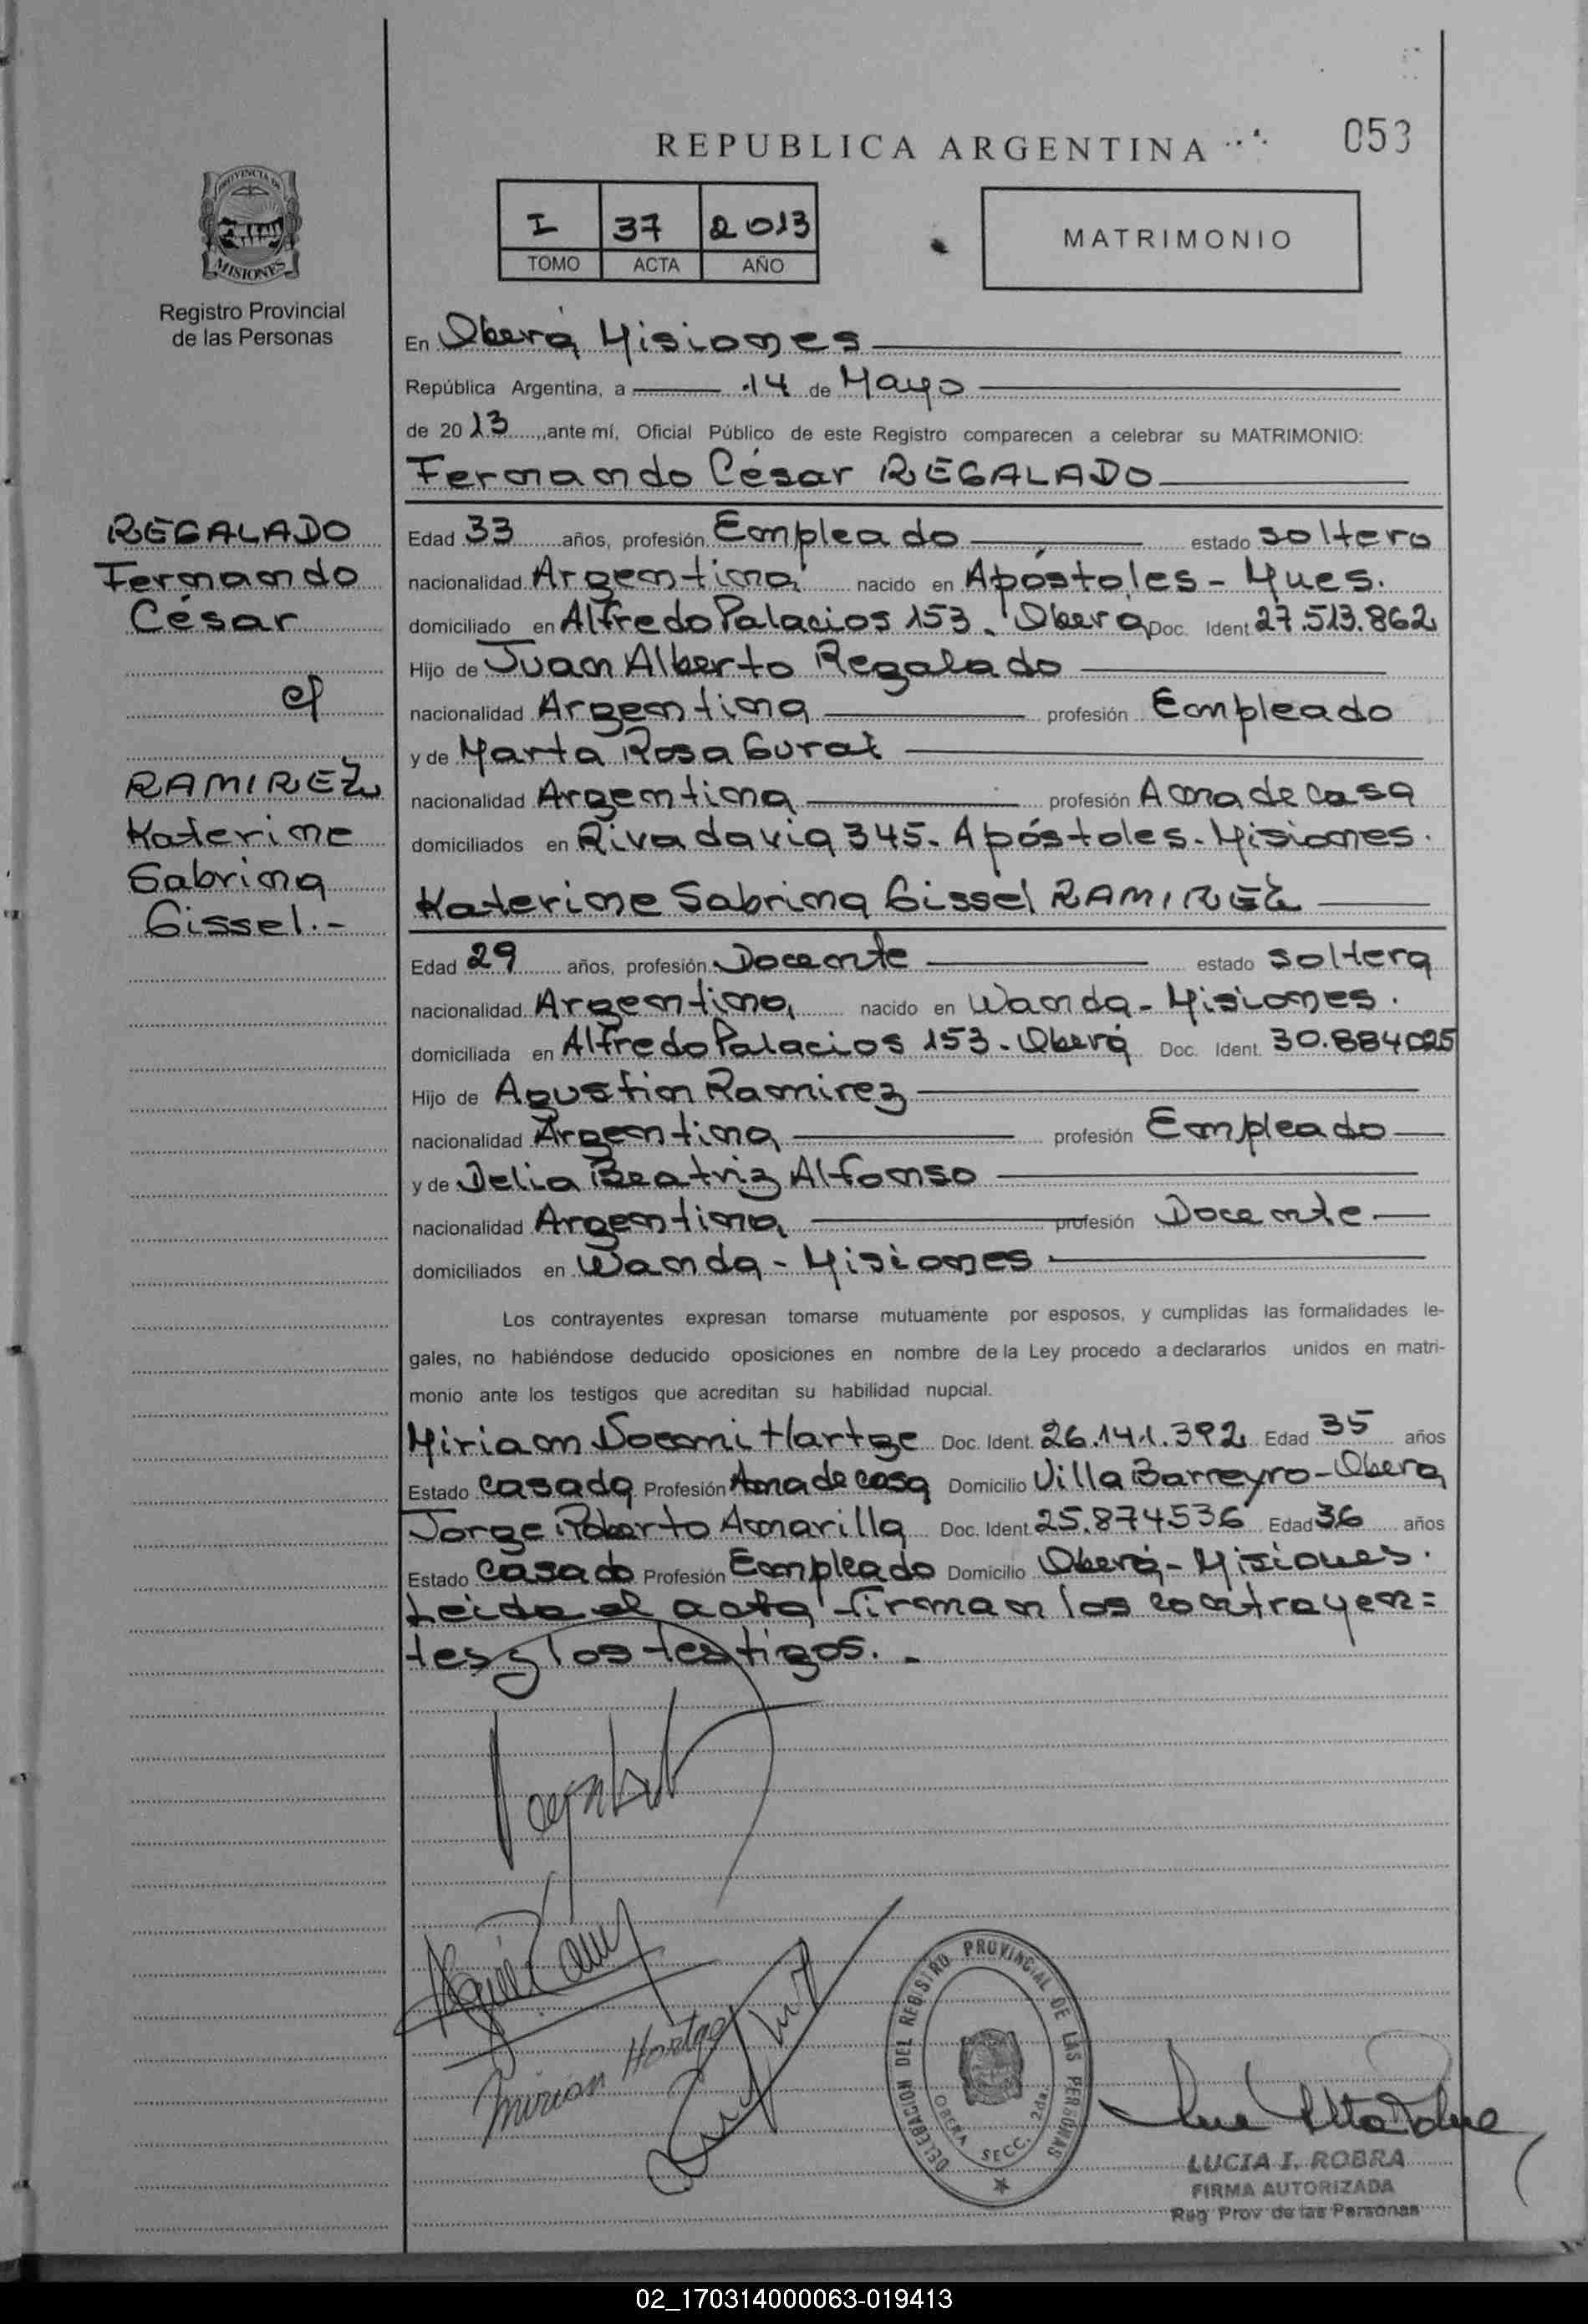 REPUBLICA ARGENTINA
053
PROVINCIA DE
MISIONES
Registro Provincial
de las Personas
I 37 2013
TOMO ACTA AÑO
MATRIMONIO
En Oberá Misiones
República Argentina, a 14 de Mayo
de 2013, ante mí, Oficial Público de este Registro comparecen a celebrar su MATRIMONIO:
Fernando César REGALADO
REGALADO
Fernando
César
c/
RAMIREZ
Katerine
Sabrina
Gissel.-
Edad 33 años, profesión Empleado estado soltero
nacionalidad Argentina nacido en Apóstoles - Mnes.
domiciliado en Alfredo Palacios 153. Oberá Doc. Ident. 27.513.862
Hijo de Juan Alberto Regalado
nacionalidad Argentina profesión Empleado
y de Marta Rosa Gural
nacionalidad Argentina profesión Ama de casa
domiciliados en Rivadavia 345. Apóstoles. Misiones.
Katerine Sabrina Gissel RAMIREZ
Edad 29 años, profesión Docente estado soltera
nacionalidad Argentina nacido en Wanda - Misiones.
domiciliada en Alfredo Palacios 153. Oberá Doc. Ident. 30.884025
Hijo de Agustin Ramirez
nacionalidad Argentina profesión Empleado
y de Delia Beatriz Alfonso
nacionalidad Argentina profesión Docente
domiciliados en Wanda - Misiones
Los contrayentes expresan tomarse mutuamente por esposos, y cumplidas las formalidades le-
gales, no habiéndose deducido oposiciones en nombre de la Ley procedo a declararlos unidos en matri-
monio ante los testigos que acreditan su habilidad nupcial.
Miriam Noemi Hartge Doc. Ident. 26.141.392 Edad 35 años
Estado casada Profesión Ama de casa Domicilio Villa Barreyro - Obera
Jorge Roberto Amarilla Doc. Ident. 25.874536 Edad 36 años
Estado casado Profesión Empleado Domicilio Oberá - Misiones.
Leida el acta firman los contrayen=
tes y los testigos.-
Mirian Hartge
DELEGACION DEL REGISTRO PROVINCIAL DE LAS PERSONAS
OBERA SECC. 2da.
LUCIA I. ROBRA
FIRMA AUTORIZADA
Reg Prov de las Personas
02_170314000063-019413